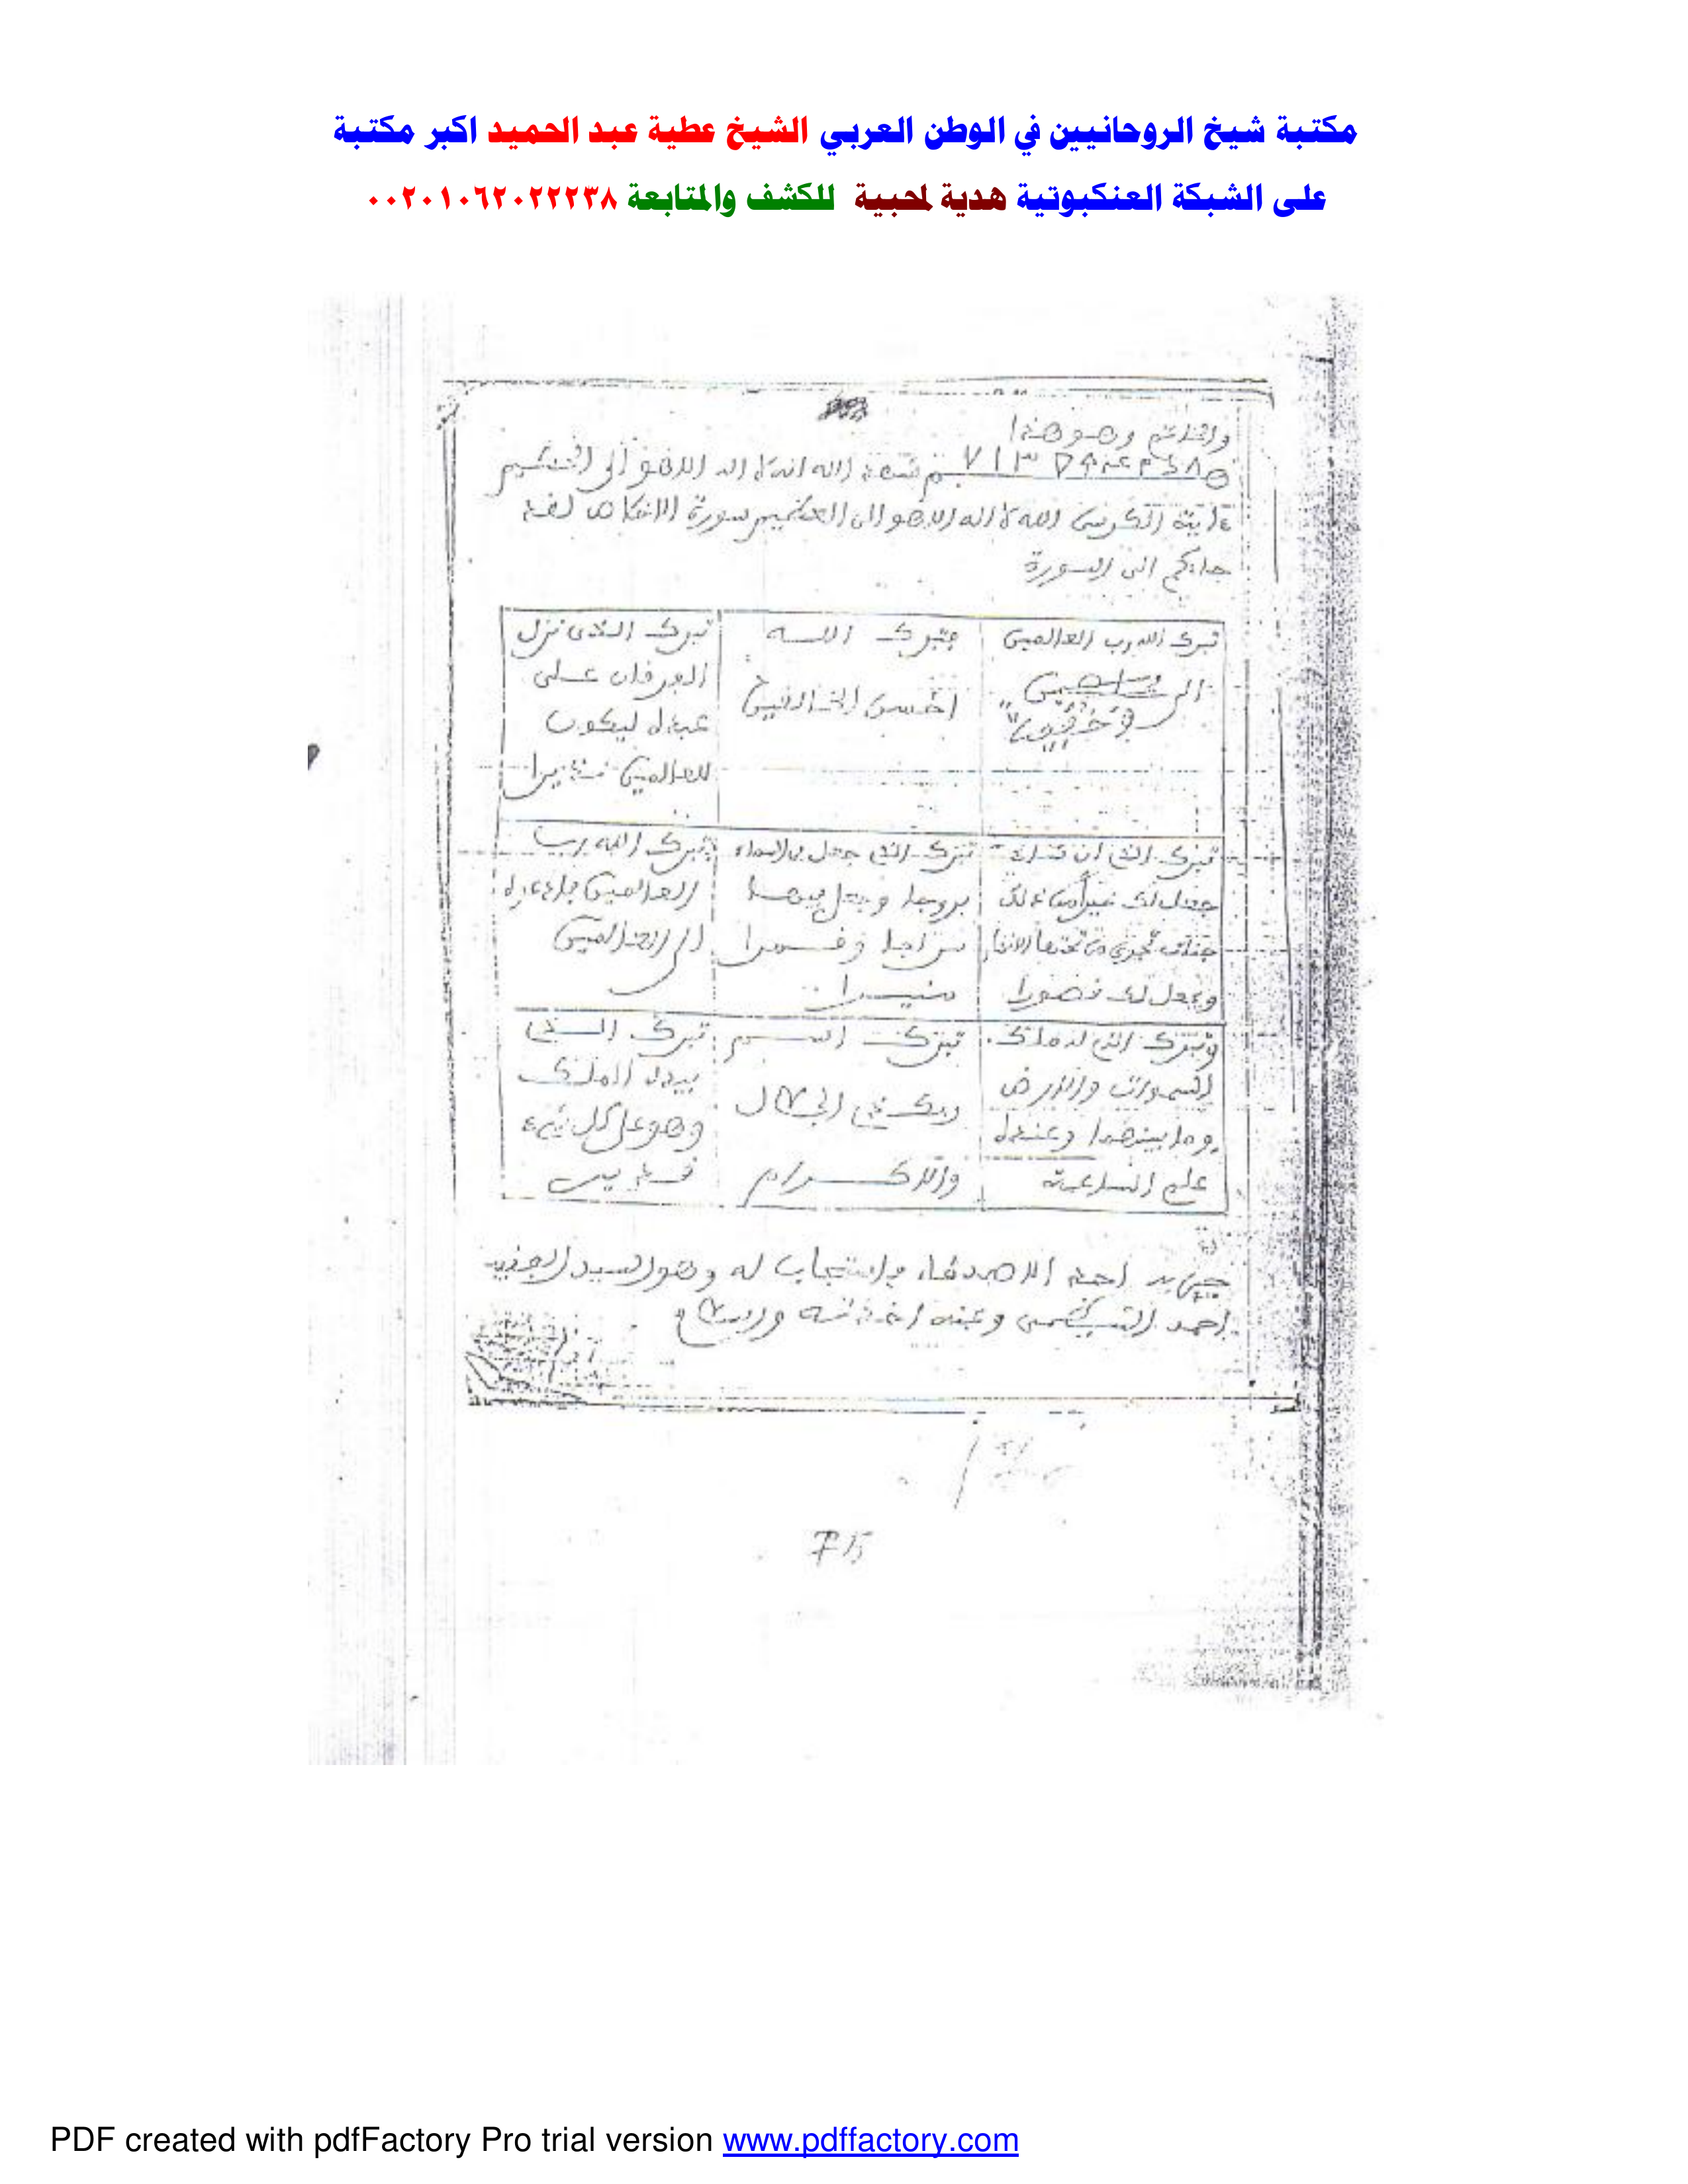 مكتبة شيخ الروحانيين في الوطن العربي الشيخ عطية عبد الحميد اكبر مكتبة
على الشبكة العنكبوتية هدية لمحبية للكشف والمتابعة ٠٠٢٠١٠٦٢٠٢٢٢٣٨
والخاتم وهو هذا
شهد الله انه لا اله الا هو الى الحكيم
ءاية الكرسي الله لا اله الا هو الى العظيم سورة الاخلاص لقد
جاءكم الى السورة
تبرك الله رب العالمين
الى
فتبرك الله
احسن الخالقين
تبرك الذي نزل
الفرقان على
عبده ليكون
للعالمين نذيرا
تبرك الذي ان شاء
جعل لك خيرا من ذلك
جنات تجري من تحتها الانهار
ويجعل لك قصورا
تبرك الذي جعل في السماء
بروجا وجعل فيها
سراجا وقمرا
منيرا
تبرك الله رب
العالمين
الى العالمين
وتبرك الذي له ملك
السموات والارض
وما بينهما وعنده
علم الساعة
تبرك اسم
ربك ذي الجلال
والاكرام
تبرك الذي
بيده الملك
وهو على كل شيء
قدير
احد الاصدقاء واستجاب له وهو السيد
احمد وعنه اخذته والسلام